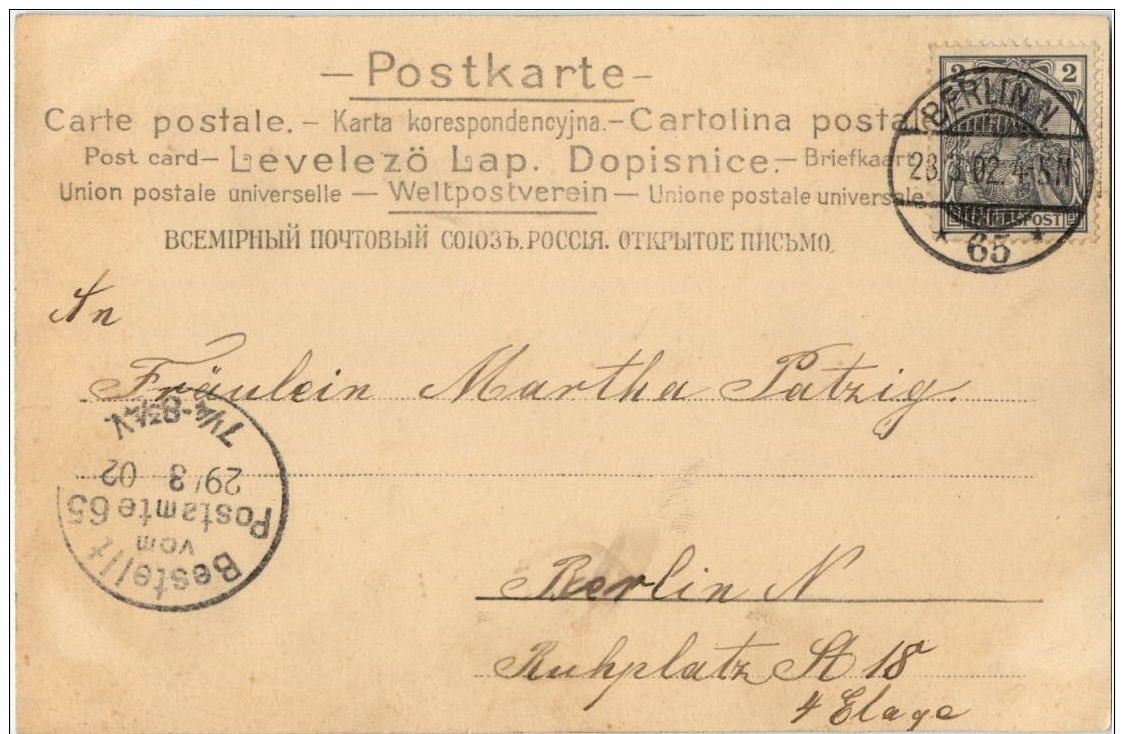 — Postkarte —
Carte postale. — Karta korespondencyjna. — Cartolina postale
Post card — Levelező Lap. Dopisnice. — Briefkaart
Union postale universelle — Weltpostverein — Unione postale universale
ВСЕМІРНЫЙ ПОЧТОВЫЙ СОЮЗЪ. РОССІЯ. ОТКРЫТОЕ ПИСЬМО.
2 2
BERLIN N
28.3.02. 4-5 N
* 65 *
An
Fräulein Martha Patzig.
Berlin N
St 18
4 Etage
Bestellt
vom
Postamte 65
29/3 02
7¼-8¾ V.